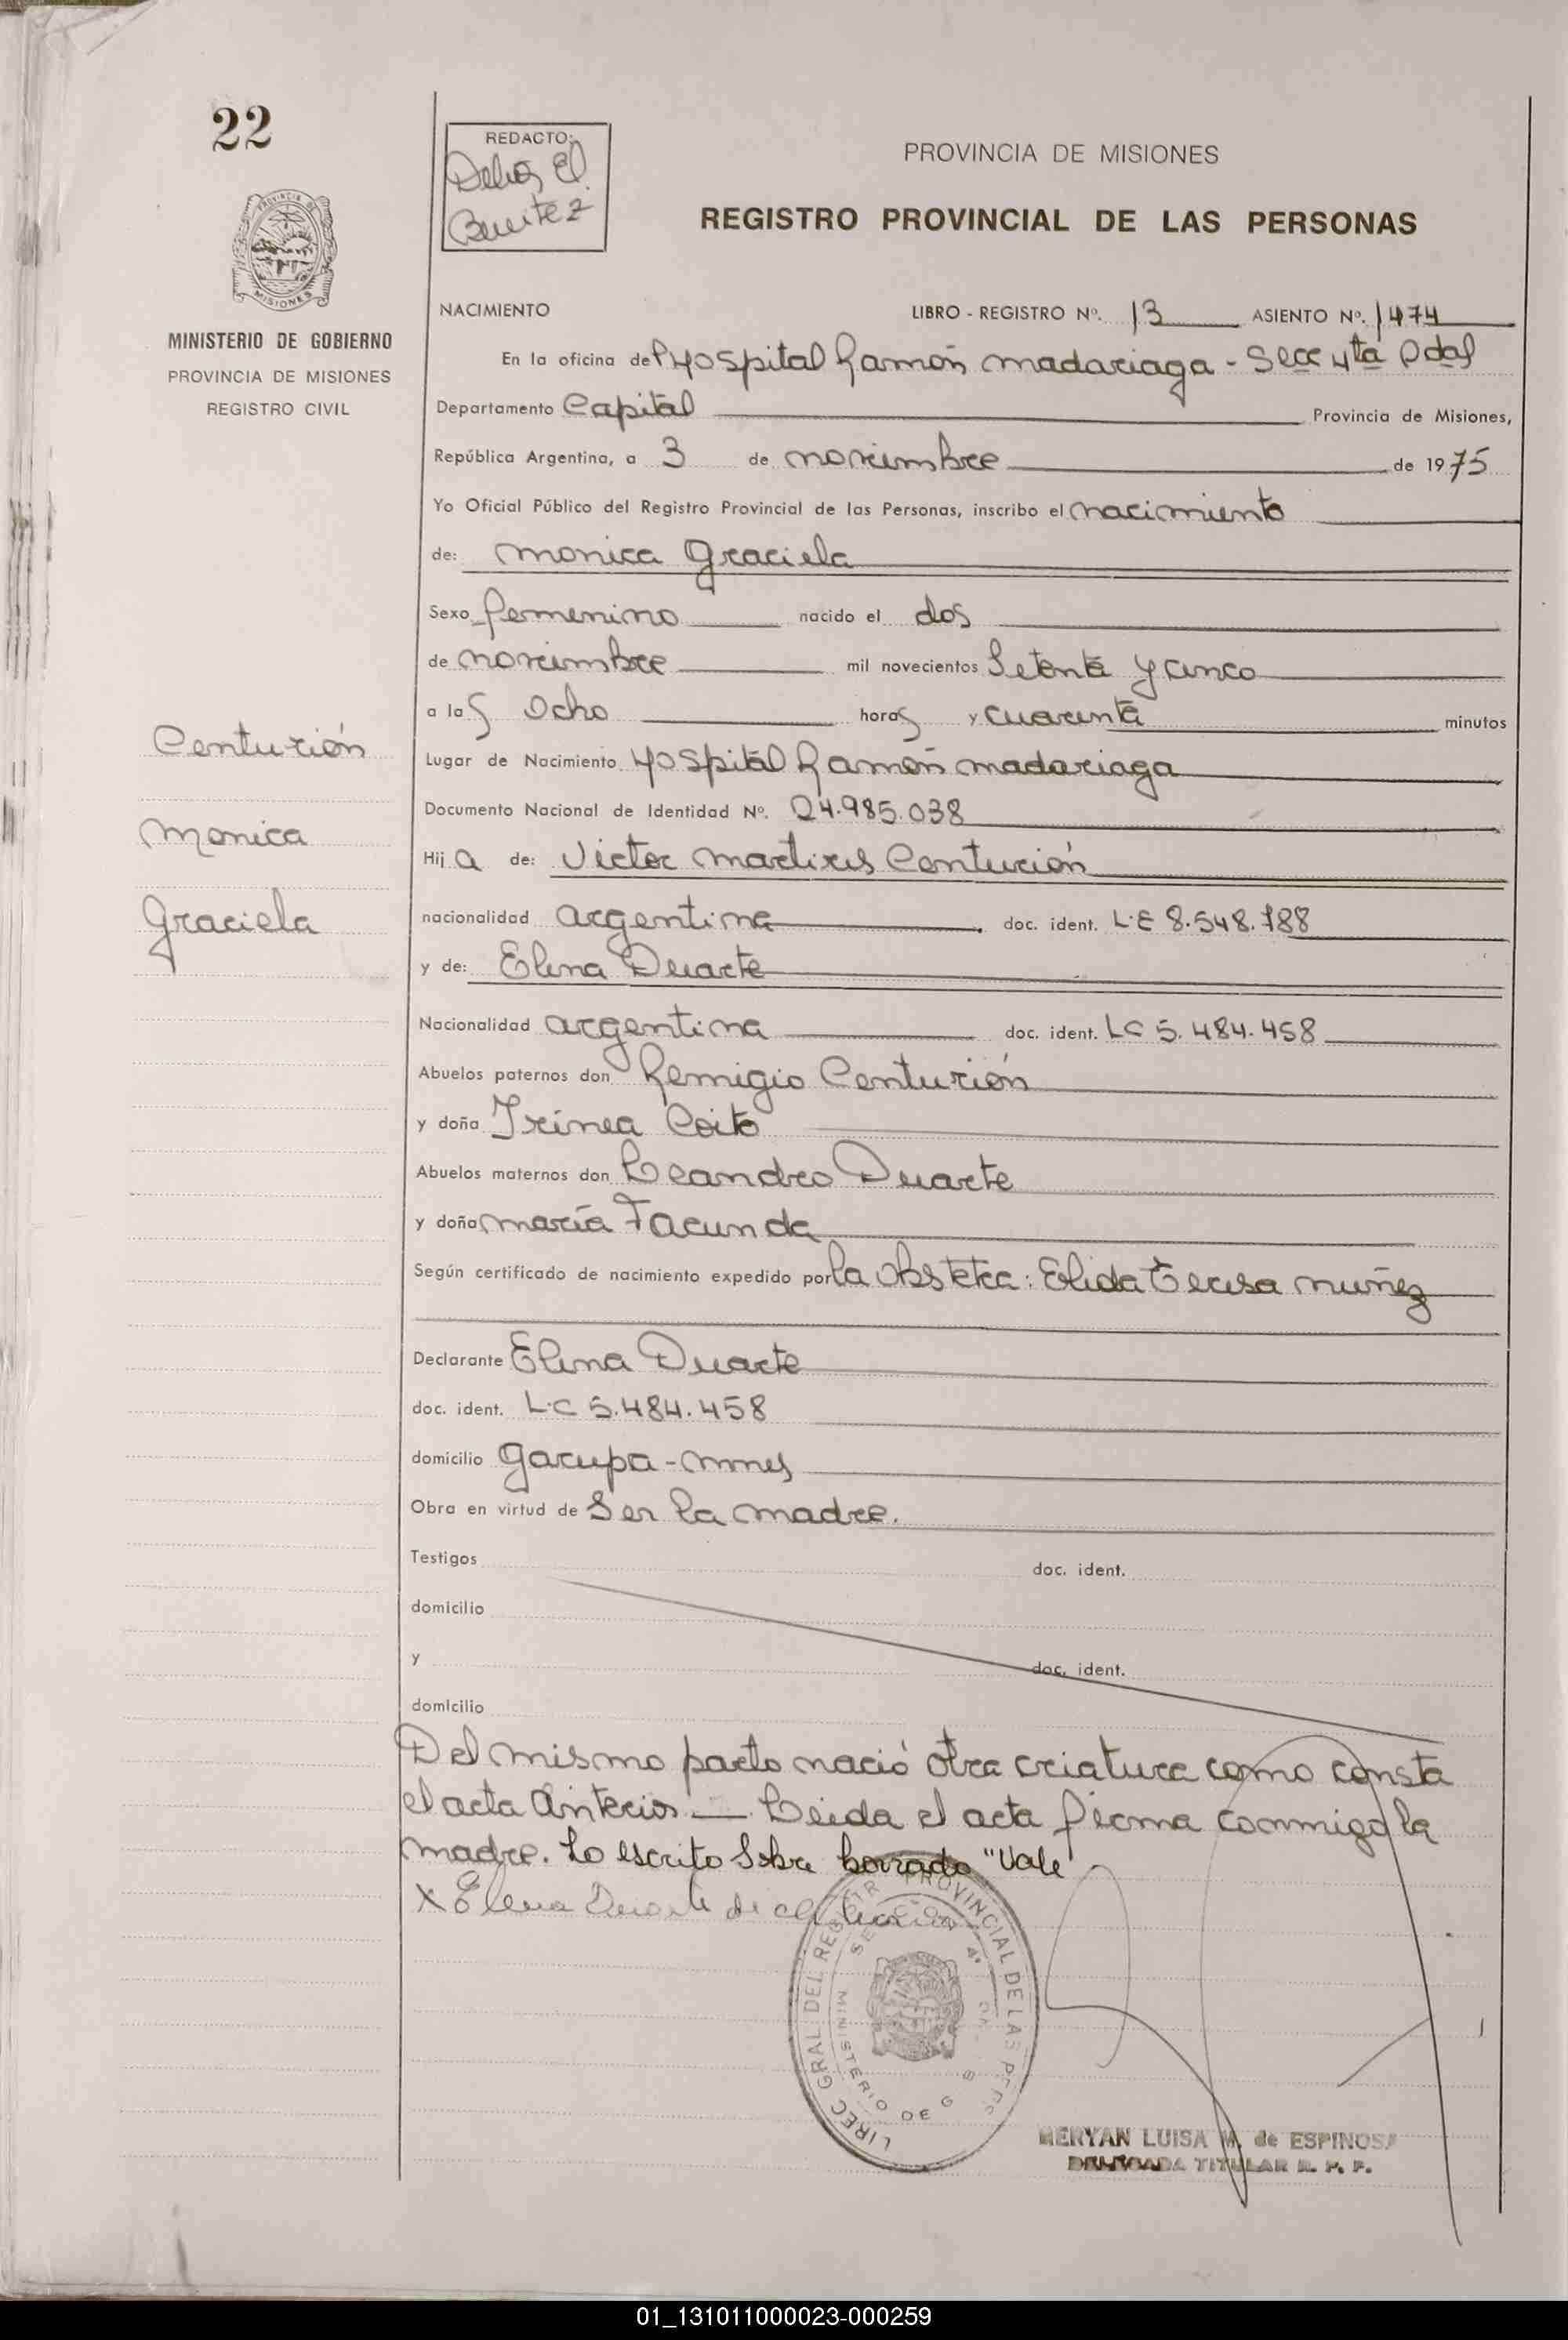 22
REDACTO:
Delia El.
Benitez
PROVINCIA DE MISIONES
REGISTRO PROVINCIAL DE LAS PERSONAS
MINISTERIO DE GOBIERNO
PROVINCIA DE MISIONES
REGISTRO CIVIL
NACIMIENTO LIBRO - REGISTRO Nº. 13 ASIENTO Nº. 1474
En la oficina del Hospital Ramón Madariaga - Secc 4ta Pdas
Departamento Capital Provincia de Misiones,
República Argentina, a 3 de noviembre de 1975
Yo Oficial Público del Registro Provincial de las Personas, inscribo el nacimiento
de: Monica Graciela
Sexo femenino nacido el dos
de noviembre mil novecientos Setenta y cinco
a las Ocho horas y cuarenta minutos
Centurión
Monica
Graciela
Lugar de Nacimiento Hospital Ramón Madariaga
Documento Nacional de Identidad Nº. 24.985.038
Hija de: Victor Martires Centurión
nacionalidad argentina doc. ident. L.E 8.548.788
y de: Elena Duarte
Nacionalidad argentina doc. ident. LC 5.484.458
Abuelos paternos don Remigio Centurión
y doña Irínea Coito
Abuelos maternos don Leandro Duarte
y doña María Facunda
Según certificado de nacimiento expedido por la Obstetra: Elida Teresa Nuñez
Declarante Elena Duarte
doc. ident. L.C 5.484.458
domicilio Garupa - Mnes
Obra en virtud de Ser la madre.
Testigos doc. ident.
domicilio
y doc. ident.
domicilio
Del mismo parto nació otra criatura como consta
el acta anterior — Leida el acta firma conmigo la
madre. Lo escrito Sobre borrado "Vale"
X Elena Duarte de Centurion
DIREC GRAL DEL REGISTR PROVINCIAL DE LAS PERS
SECCION 4ª
MINISTERIO DE G
MERYAN LUISA M. de ESPINOSA
DELEGADA TITULAR R. P. P.
01_131011000023-000259